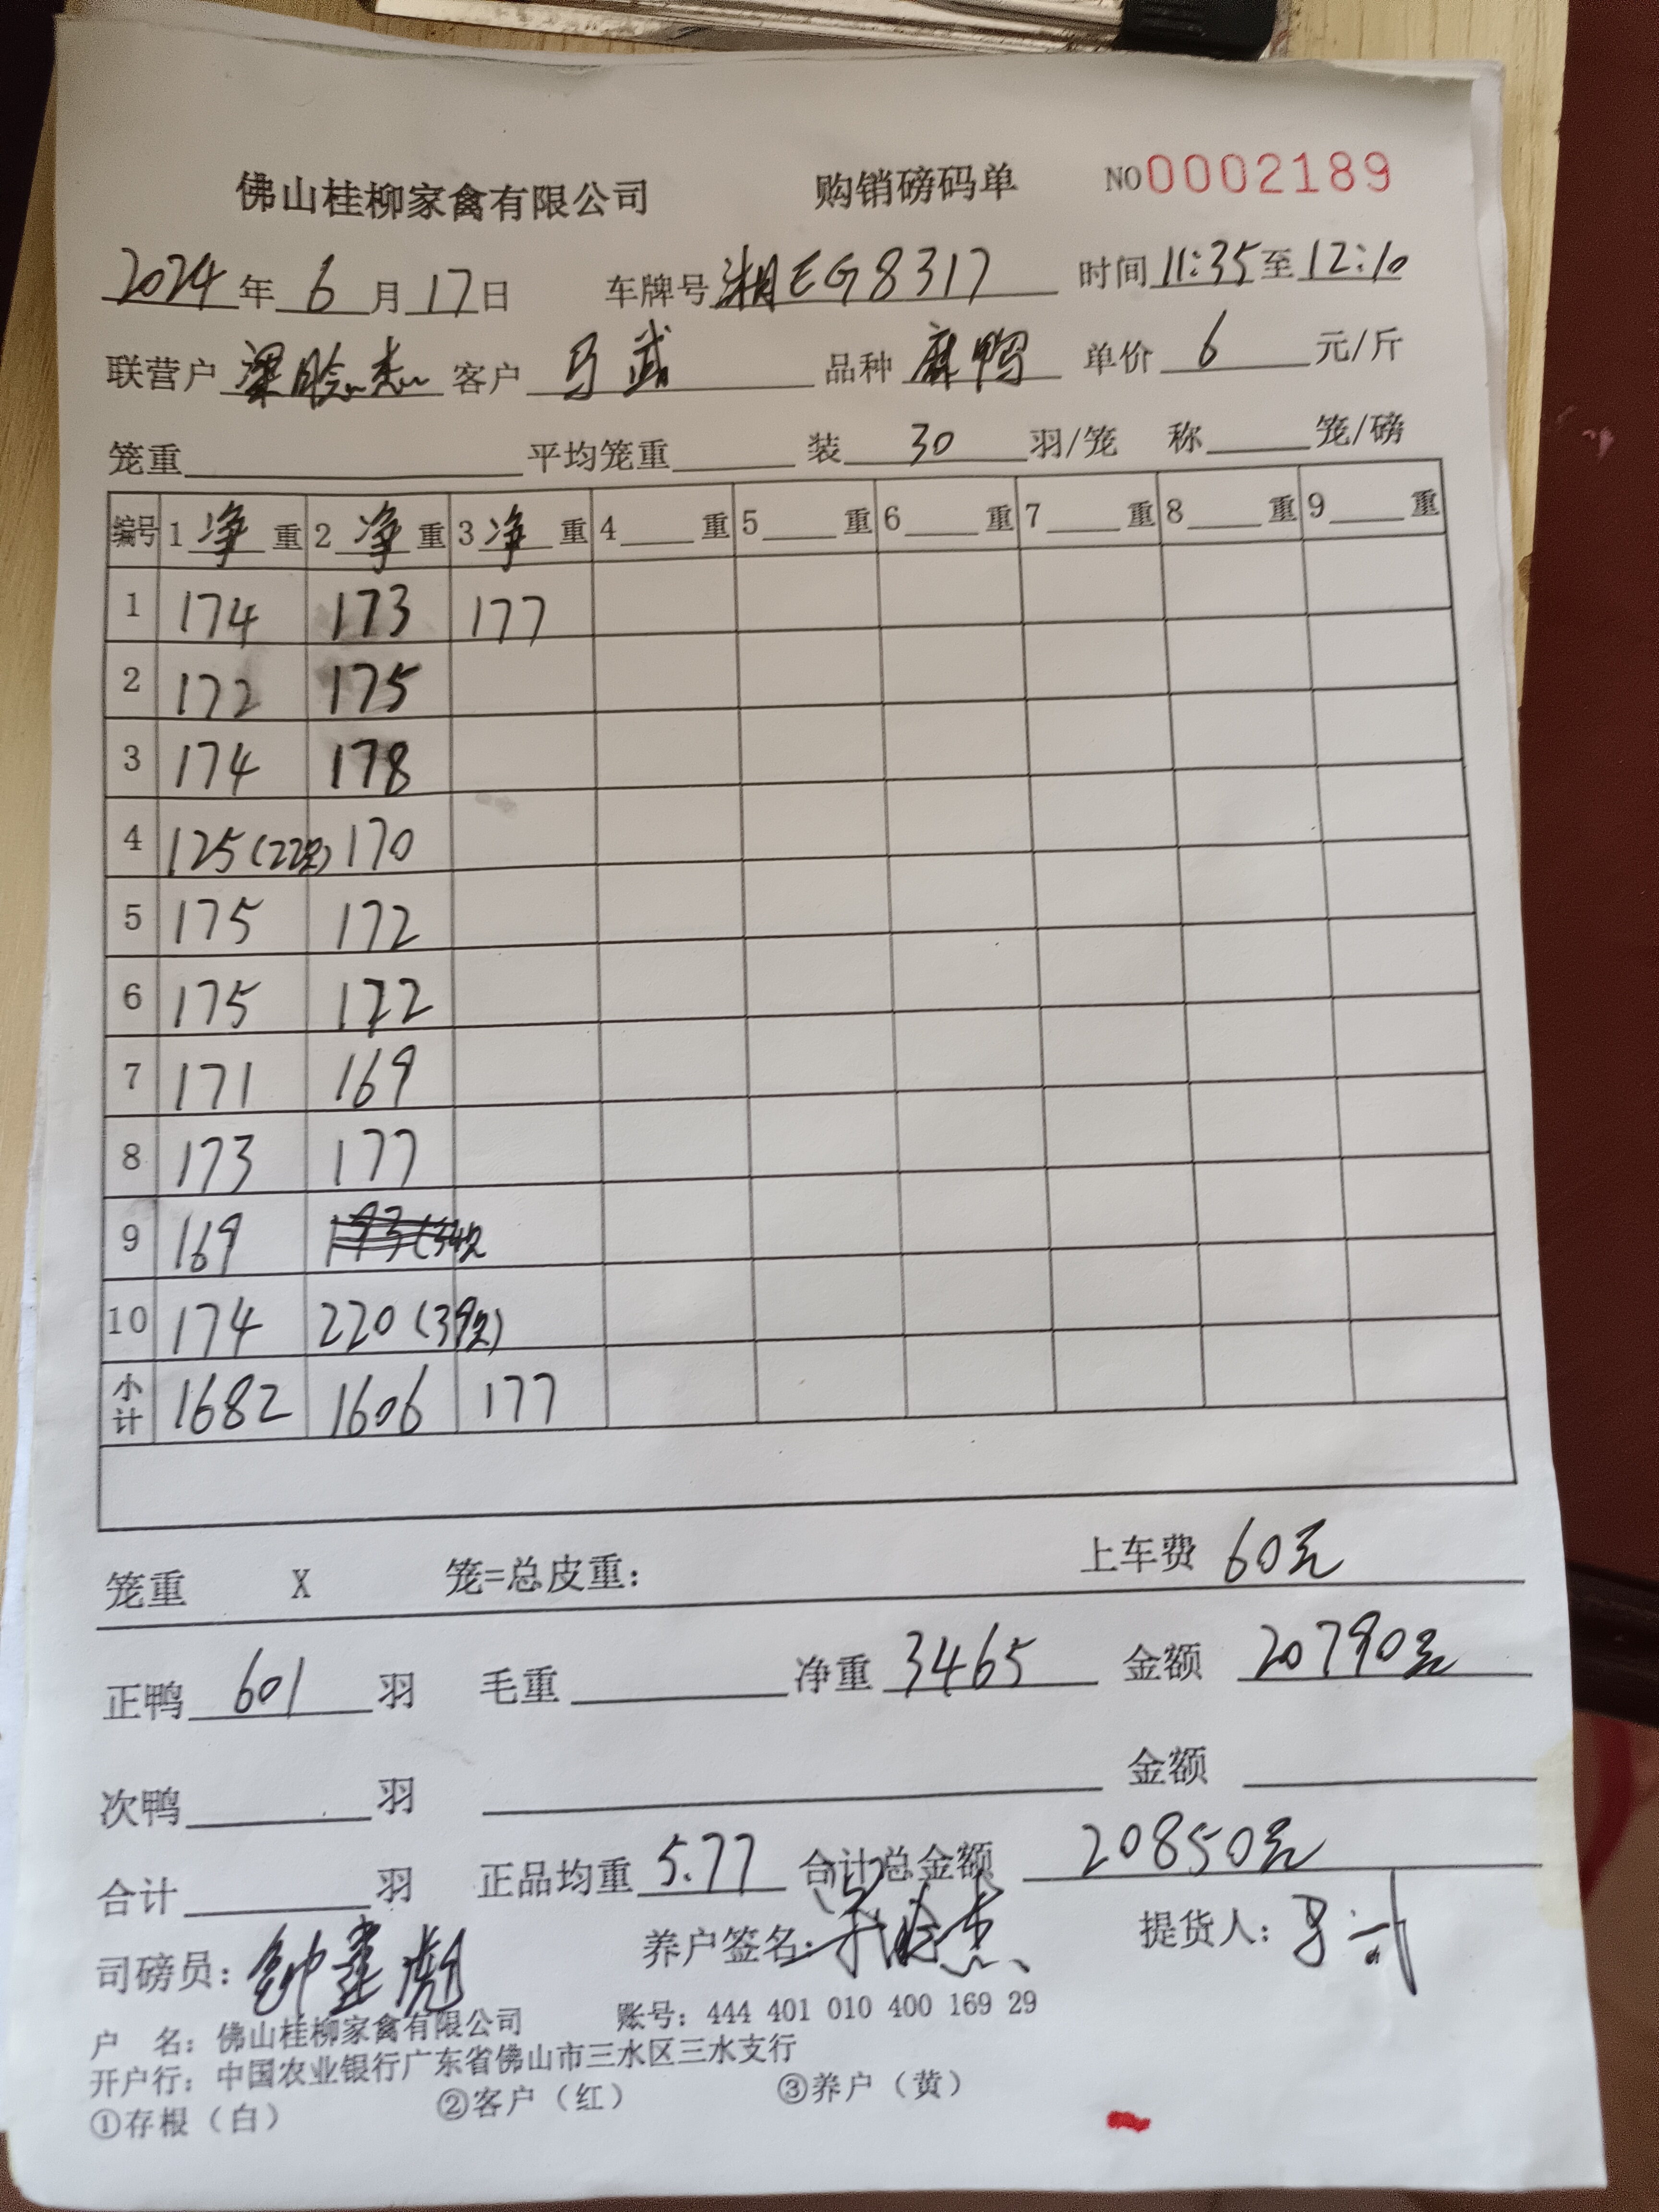 佛山桂柳家禽有限公司 购销磅码单 NO0002189
2024年 6 月 17日 车牌号 湘EG8317 时间 11:35 至 12:10
联营户 梁晗杰 客户 马武 品种 麻鸭 单价 6 元/斤
笼重 平均笼重 装 30 羽/笼 称 笼/磅
编号 1 净 重 2 净 重 3 净 重 4 重 5 重 6 重 7 重 8 重 9 重
1 174 173 177
2 172 175
3 174 178
4 125(22只) 170
5 175 172
6 175 172
7 171 169
8 173 177
9 169 193(34只
10 174 220(39只)
小计 1682 1606 177
笼重 X 笼=总皮重： 上车费 60元
正鸭 601 羽 毛重 净重 3465 金额 20790元
次鸭 羽 金额
合计 羽 正品均重 5.77 合计总金额 20850元
司磅员： 养户签名： 提货人：马武
户 名：佛山桂柳家禽有限公司 账号：444 401 010 400 169 29
开户行：中国农业银行广东省佛山市三水区三水支行
①存根（白） ②客户（红） ③养户（黄）